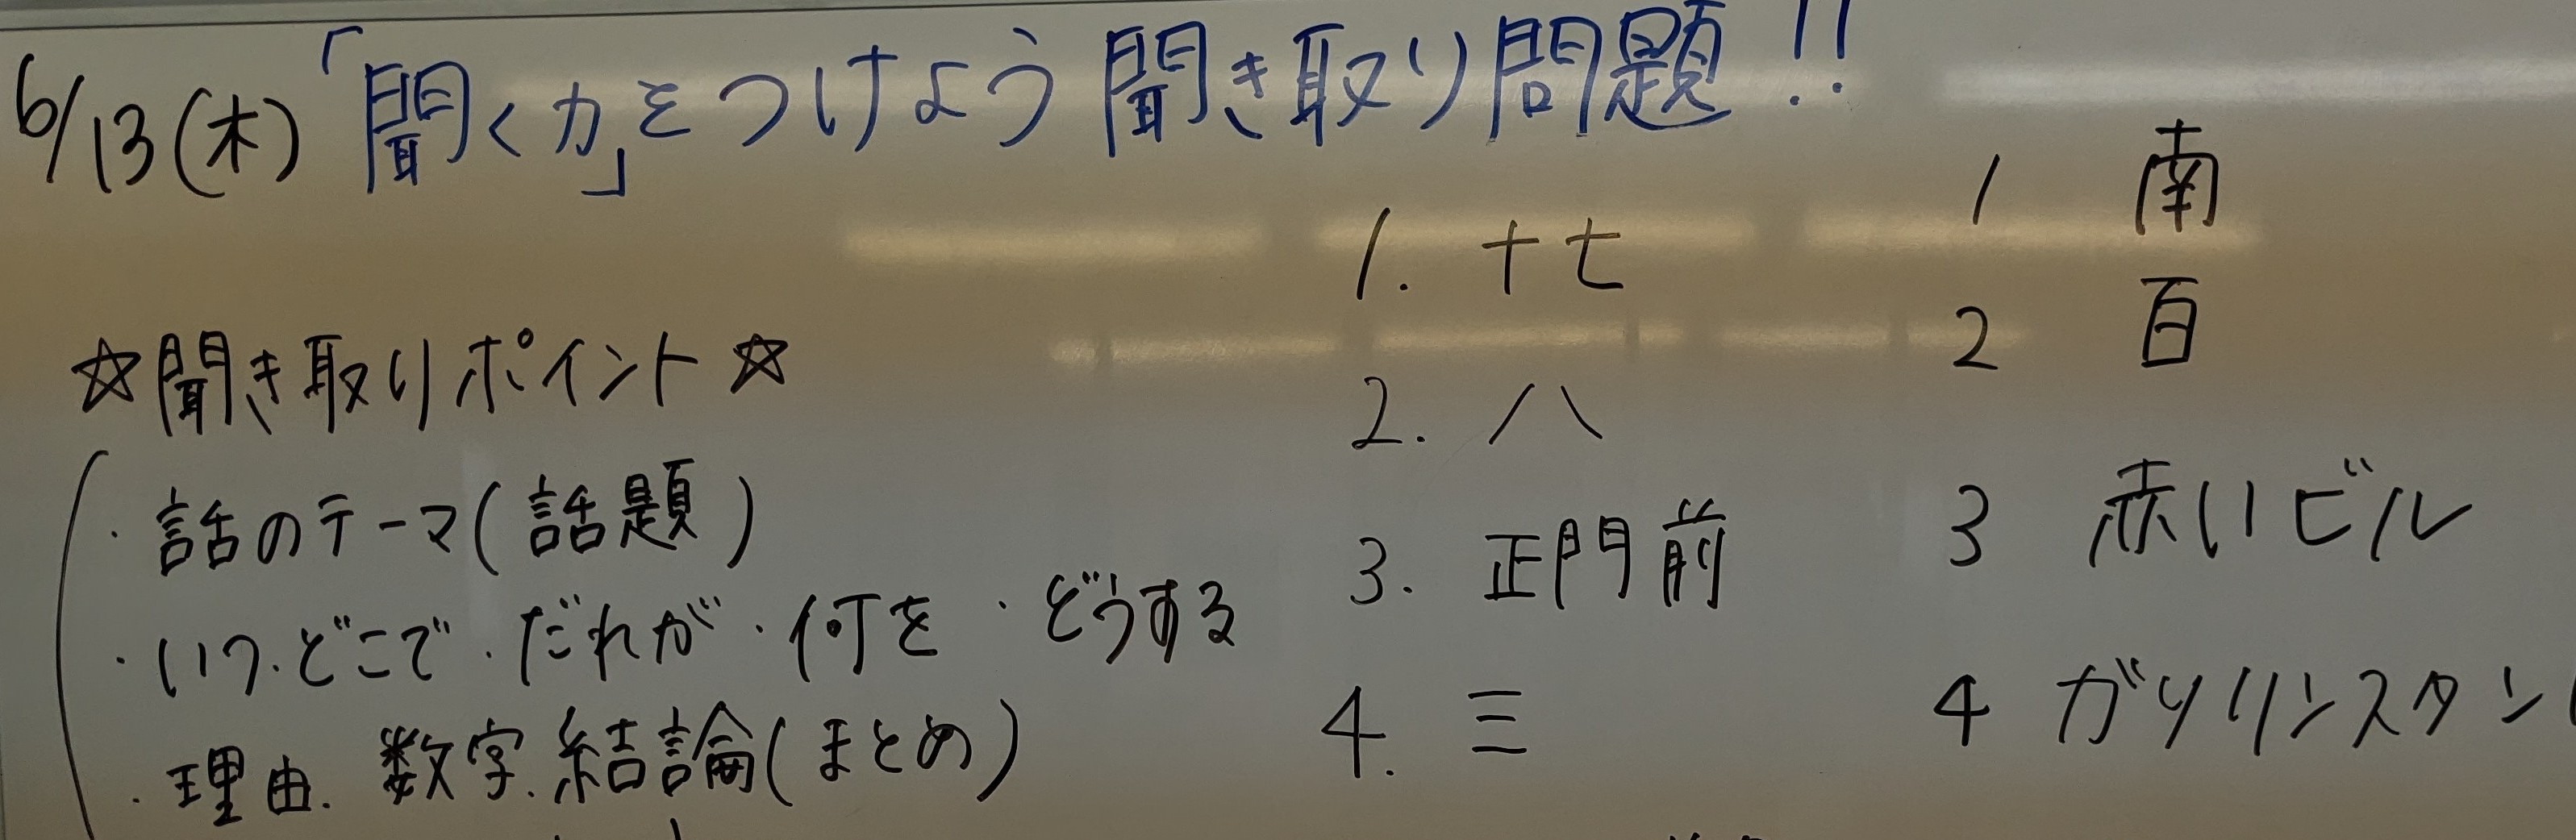 6/13(木)「聞く力」をつけよう 聞き取り問題!!
☆聞き取りポイント☆
・話のテーマ(話題)
・いつ・どこで・だれが・何を・どうする
・理由・数字・結論(まとめ)
1. 十七
2. 八
3. 正門前
4. 三
1 南
2 百
3 赤いビル
4 ガソリンスタン